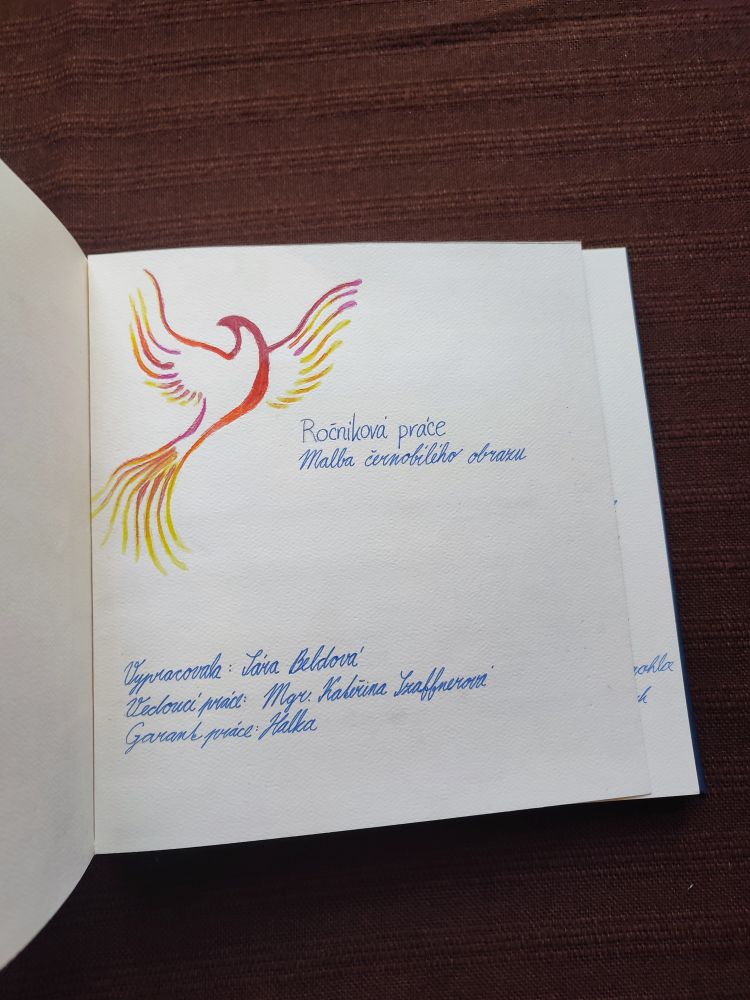 Ročníková práce
Malba černobílého obrazu
Vypracovala: Sára Beldová
Vedoucí práce: Mgr. Kateřina
Garant práce: Halka